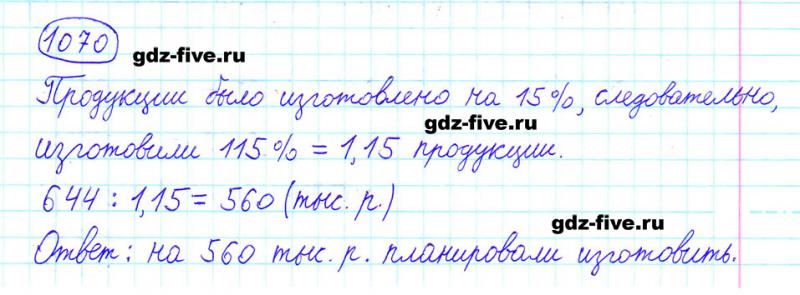 1070
gdz-five.ru
Продукции было изготовлено на 15%, следовательно,
gdz-five.ru
изготовили 115% = 1,15 продукции.
644 : 1,15 = 560 (тыс. р.)
gdz-five.ru
Ответ: на 560 тыс. р. планировали изготовить.